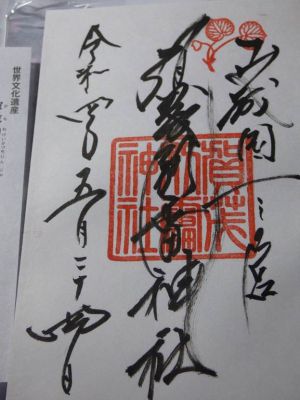 山城国一之宮
賀茂別雷神社
賀茂別雷神社
令和四年五月二十四日
世界文化遺産